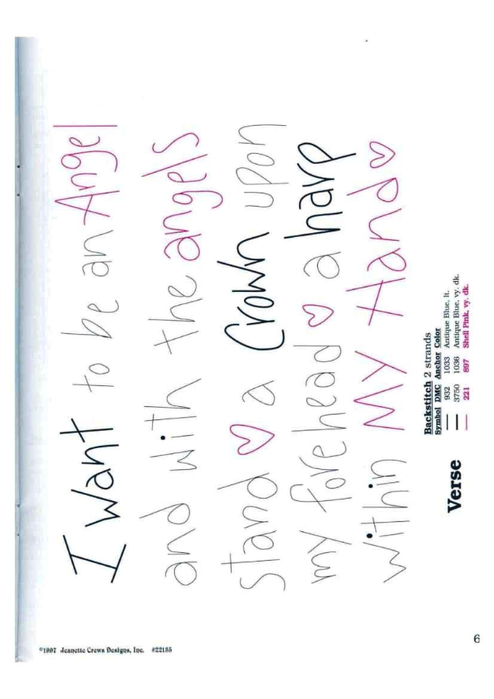 I want to be an Angel
and with the angels
Stand a Crown upon
my forehead a harp
within My Hand
Verse
Backstitch 2 strands
Symbol DMC Anchor Color
932 1033 Antique Blue, lt.
3750 1036 Antique Blue, vy. dk.
221 897 Shell Pink, vy. dk.
©1997 Jeanette Crews Designs, Inc. #22185
6